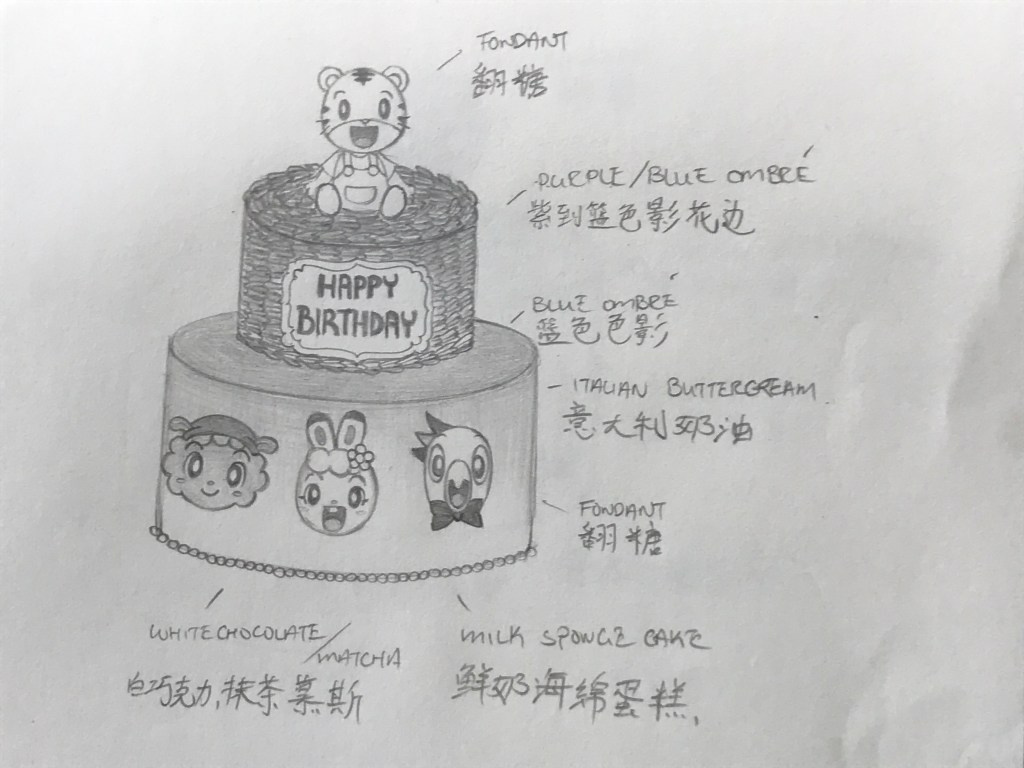 FONDANT
翻糖
PURPLE/BLUE OMBRÉ
紫到篮色影花边
HAPPY
BIRTHDAY
BLUE OMBRÉ
篮色色影
ITALIAN BUTTERCREAM
意大利奶油
FONDANT
翻糖
WHITECHOCOLATE/
MATCHA
白巧克力,抹茶慕斯
MILK SPONGE CAKE
鲜奶海绵蛋糕,